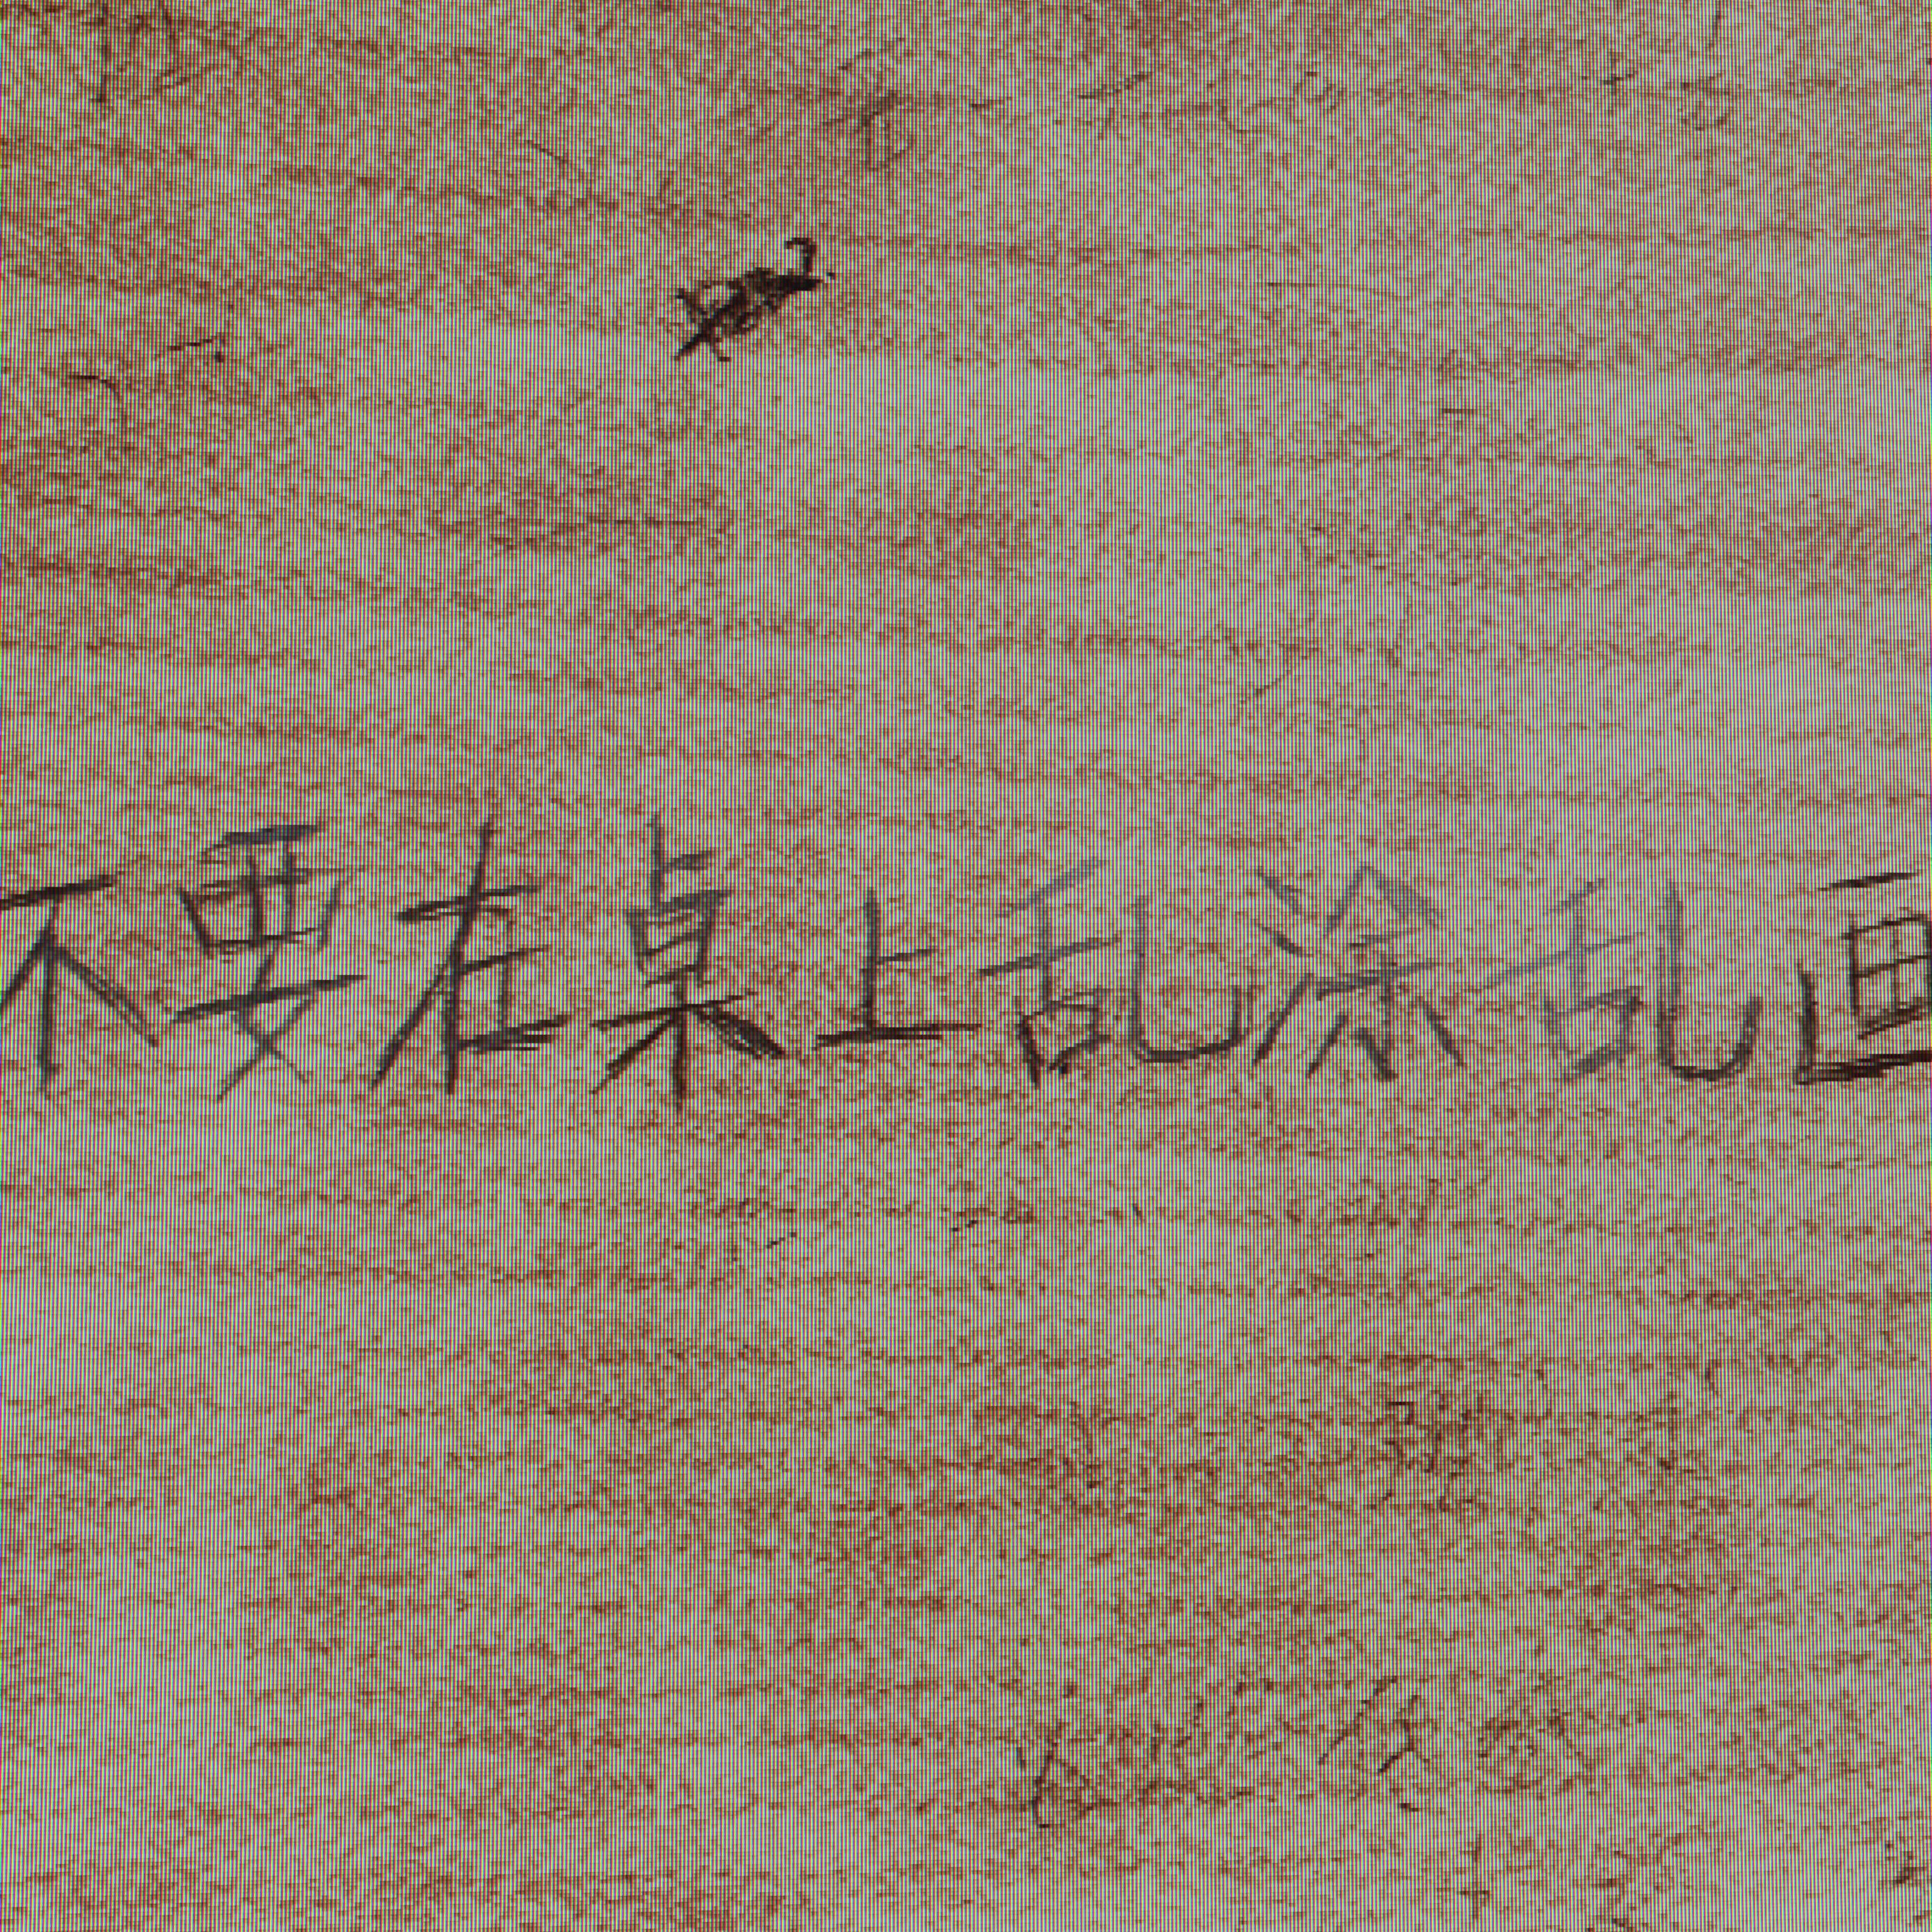 不要在桌上乱涂乱画